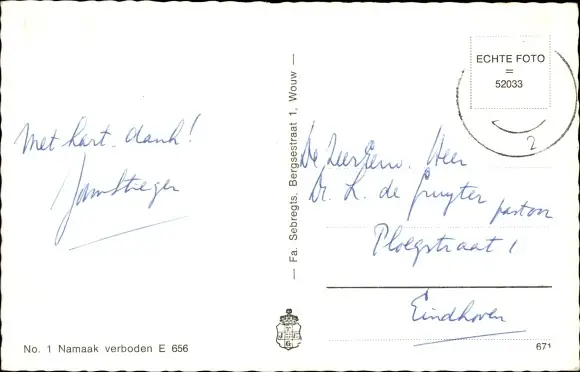 Met hart. dank!
ECHTE FOTO
=
52033
2
De ZeerEerw. Heer
Dr. L. de Gruyter pastoor
Ploegstraat 1
Eindhoven
Fa. Sebregts, Bergsestraat 1, Wouw
No. 1 Namaak verboden E 656
671